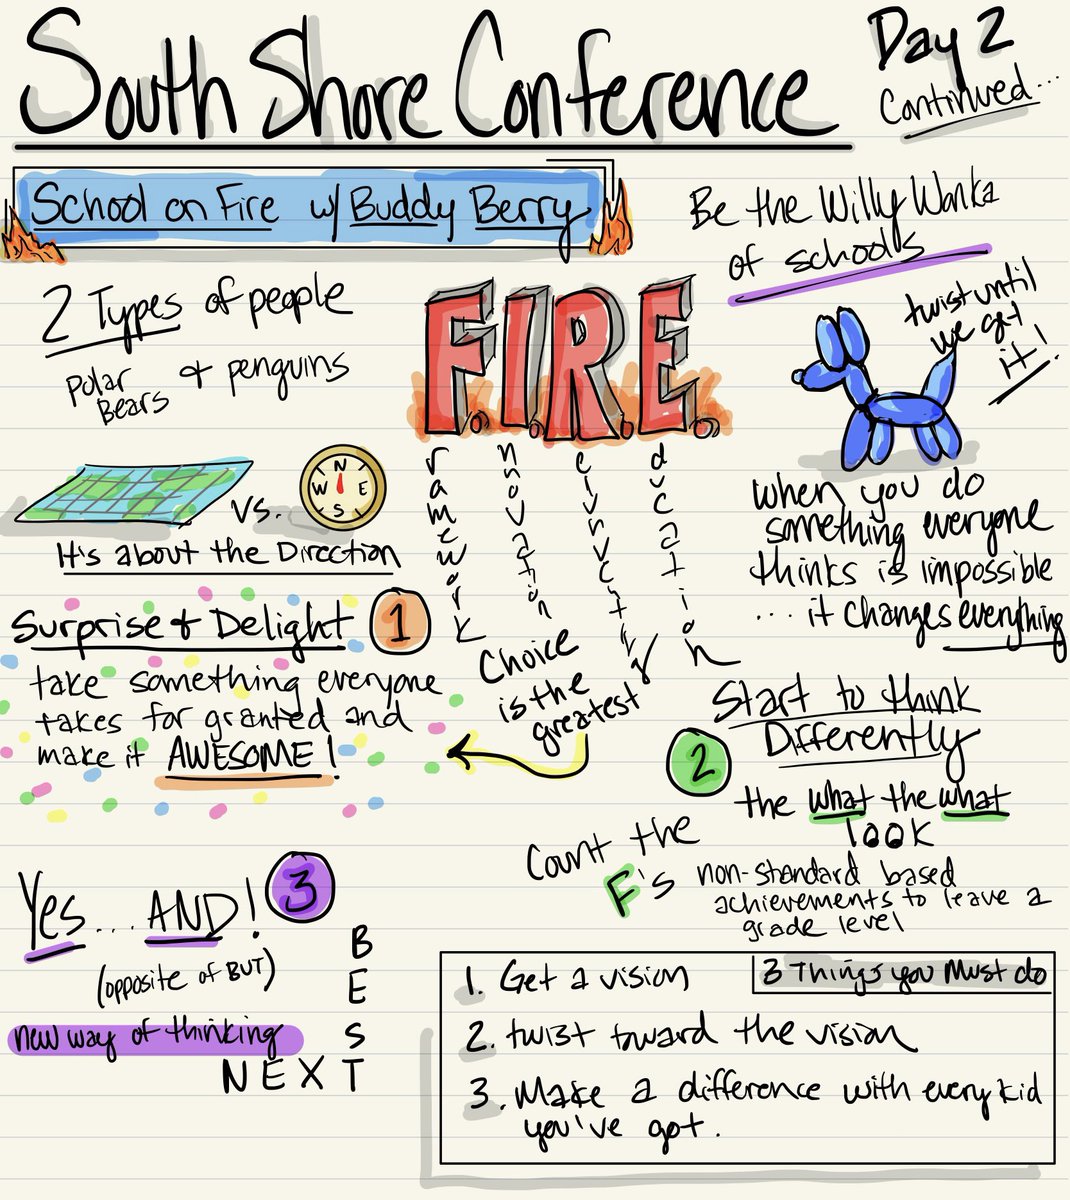 South Shore Conference
Day 2
Continued...
School on Fire w/ Buddy Berry
Be the Willy Wonka
of schools
2 Types of people
Polar
Bears
& penguins
F.I.R.E.
ramework
nnovation
ducation
twist until
we get
it!
N
W E
S
vs.
It's about the Direction
when you do
something everyone
thinks is impossible
... it changes everything
Surprise & Delight 1
take something everyone
takes for granted and
make it AWESOME!
Choice
is the
greatest
2 Start to think
Differently
the what the what
look
Count the
F's
non-standard based
achievements to leave a
grade level
Yes...AND! 3
(opposite of BUT)
new way of thinking
B
E
S
NEXT
3 Things you Must do
1. Get a vision
2. twist toward the vision
3. Make a difference with every kid
you've got.